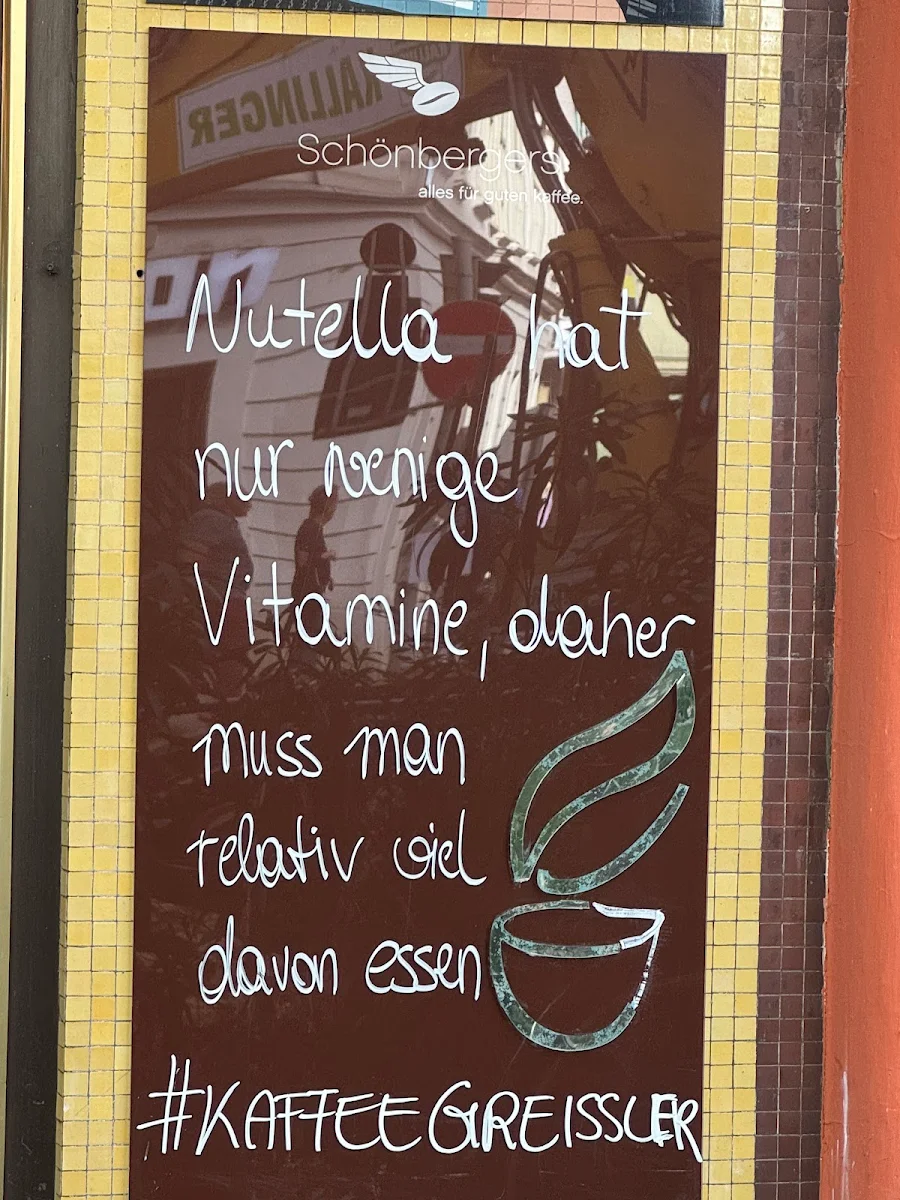 KALLINGER
Schönbergers
alles für guten kaffee.
Nutella hat
nur wenige
Vitamine, daher
muss man
relativ viel
davon essen
#KAFFEEGREISSLER